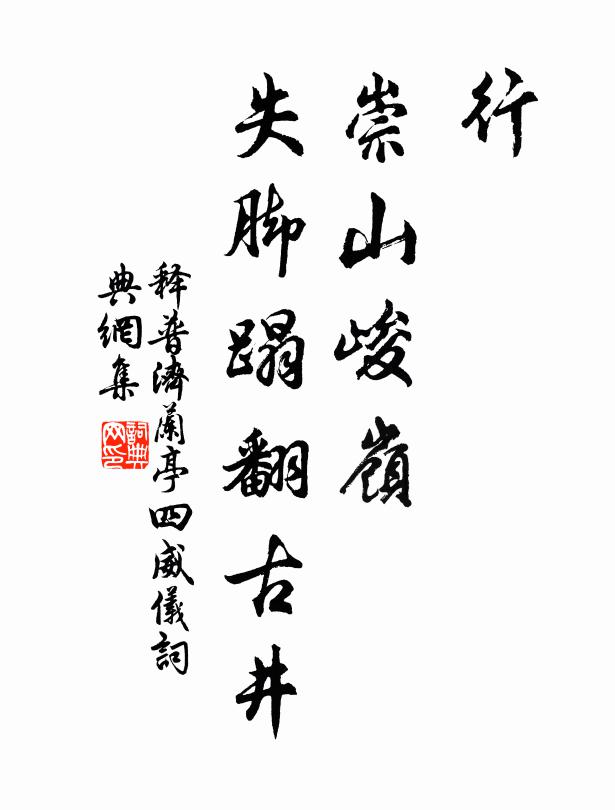 行
崇山峻嶺
失脚蹋翻古井
释普濟蘭亭四威儀詞
典網集
詞典網印